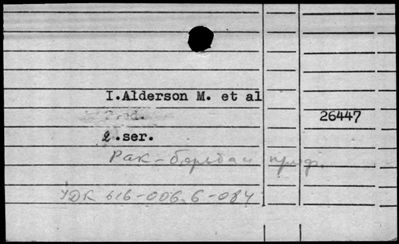 I.Alderson M. et al
26447
2.ser.
Рак-борьба и проф.
УДК 616-006.6-084